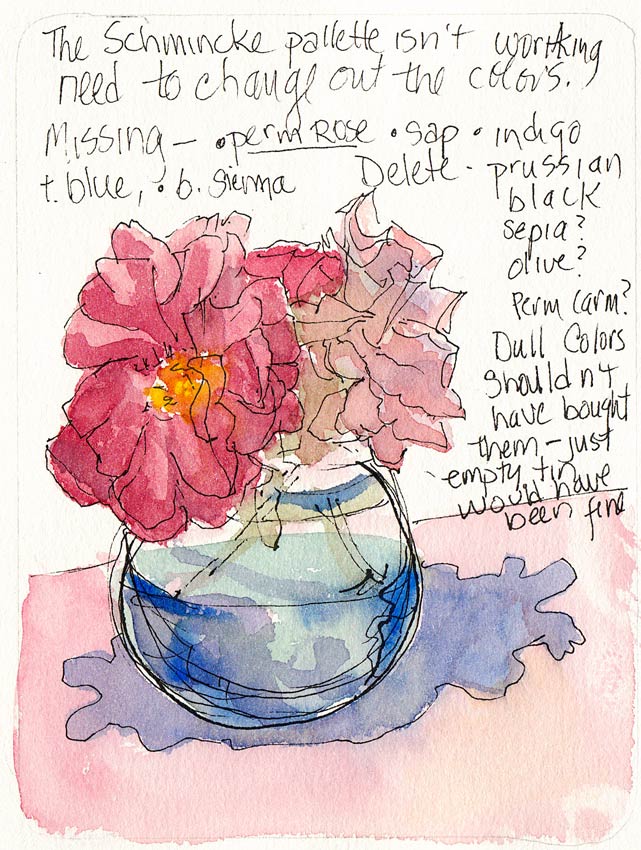 The Schmincke pallette isn't working
need to change out the colors.
Missing – • perm Rose • sap • indigo
t. blue, • b. sienna Delete - prussian
black
sepia?
olive?
Perm Carm?
Dull Colors
Shouldn't
have bought
them – just
empty tin
would have
been fine